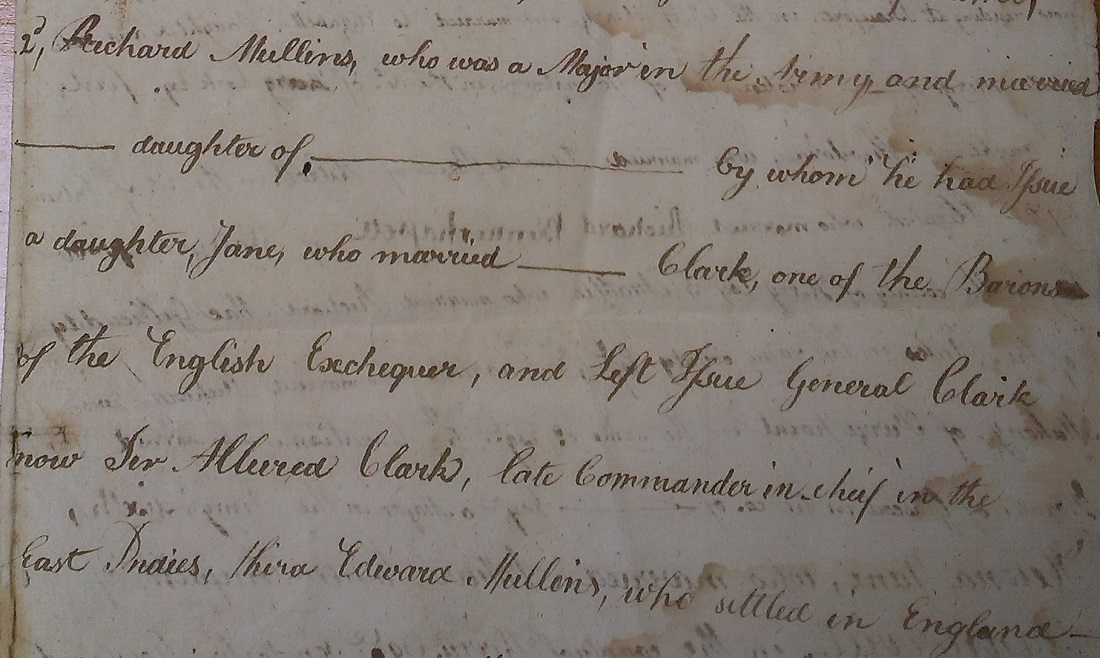 2d, Richard Mullins, who was a Major in the Army and married
——— daughter of, ——————— by whom he had Issue
a daughter, Jane, who married ——— Clark, one of the Barons
of the English Exchequer, and Left Issue General Clark
now Sir Allured Clark, late Commander in cheif in the
East Indies, third Edward Mullins, who settled in England —